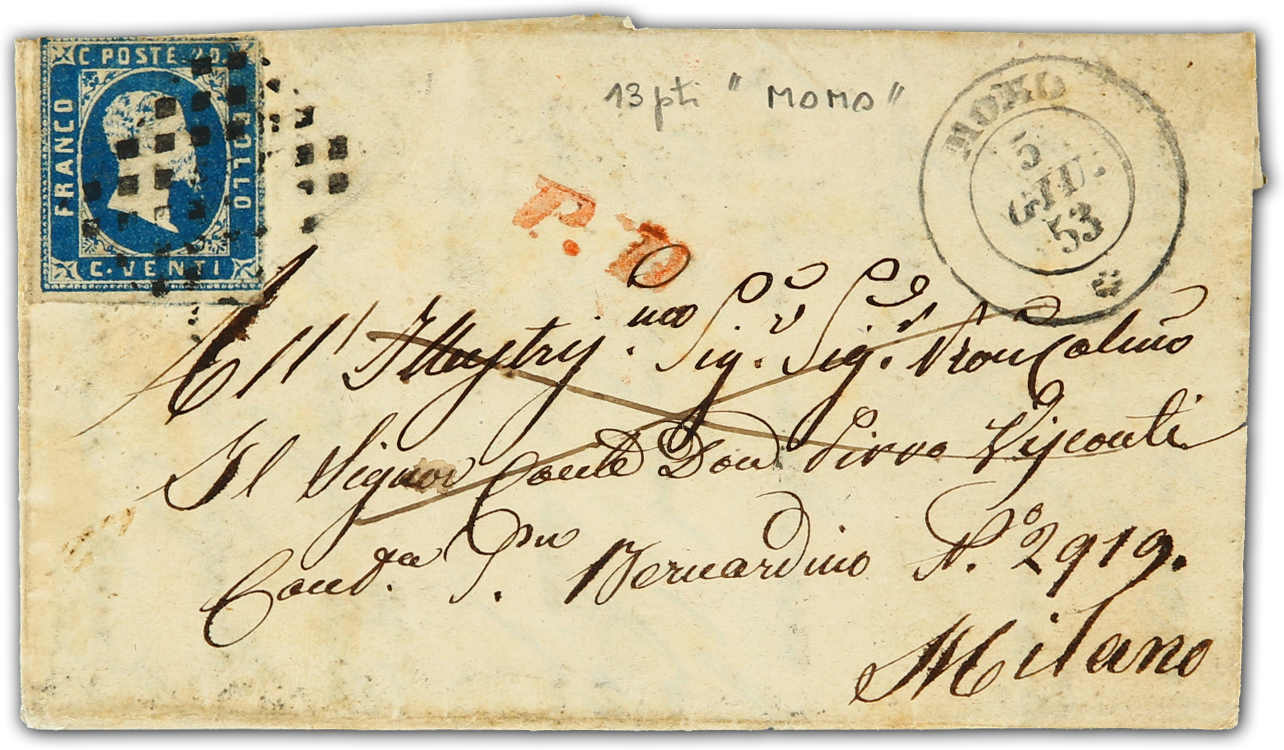 C POSTE 20
FRANCO
BOLLO
C. VENTI
13 pti "MOMO"
MOMO
5
GIU.
53
P. D
All' Illustris.mo Sig.r Sig.r Pron Colmo
Il Signor Conte Don Pirro Visconti
Cont.da S.n Bernardino N.o 2919.
Milano